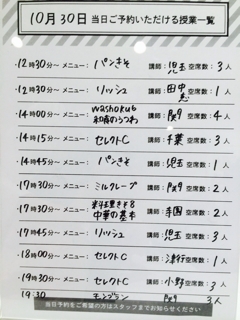 10月30日 当日ご予約いただける授業一覧
12時30分〜 メニュー： パンきそ 講師：児玉 空席数：3人
12時30分〜 メニュー： リッシュ 講師：田中恵 空席数：1人
14時00分〜 メニュー： washoku6 和食のうつわ 講師： 空席数：4人
14時15分〜 メニュー： セレクトC 講師：千葉 空席数：3人
14時45分〜 メニュー： パンきそ 講師：児玉 空席数：1人
17時30分〜 メニュー： ミルクレープ 講師： 空席数：2人
17時30分〜 メニュー： 料理きそ8 中華の基本 講師：寺園 空席数：2人
17時45分〜 メニュー： リッシュ 講師：児玉 空席数：3人
18時00分〜 メニュー： セレクトC 講師：津行 空席数：1人
19時30分〜 メニュー： セレクトC 講師：小野 空席数：3人
19:30 モンブラン 3人
当日予約をご希望の方はスタッフまでお知らせください